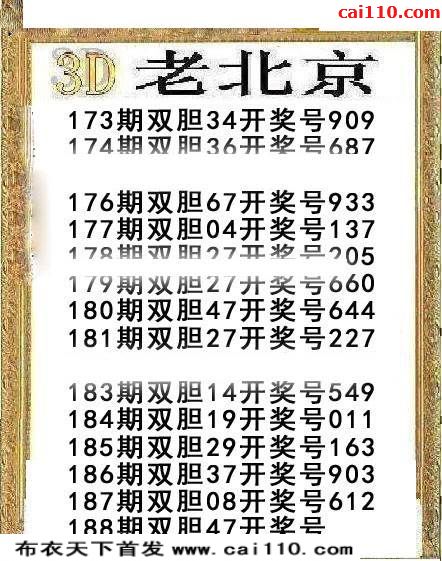 cai110.com
3D 老北京
173期双胆34开奖号909
174期双胆36开奖号687
176期双胆67开奖号933
177期双胆04开奖号137
178期双胆27开奖号205
179期双胆27开奖号660
180期双胆47开奖号644
181期双胆27开奖号227
183期双胆14开奖号549
184期双胆19开奖号011
185期双胆29开奖号163
186期双胆37开奖号903
187期双胆08开奖号612
188期双胆47开奖号
布衣天下首发 www.cai110.com